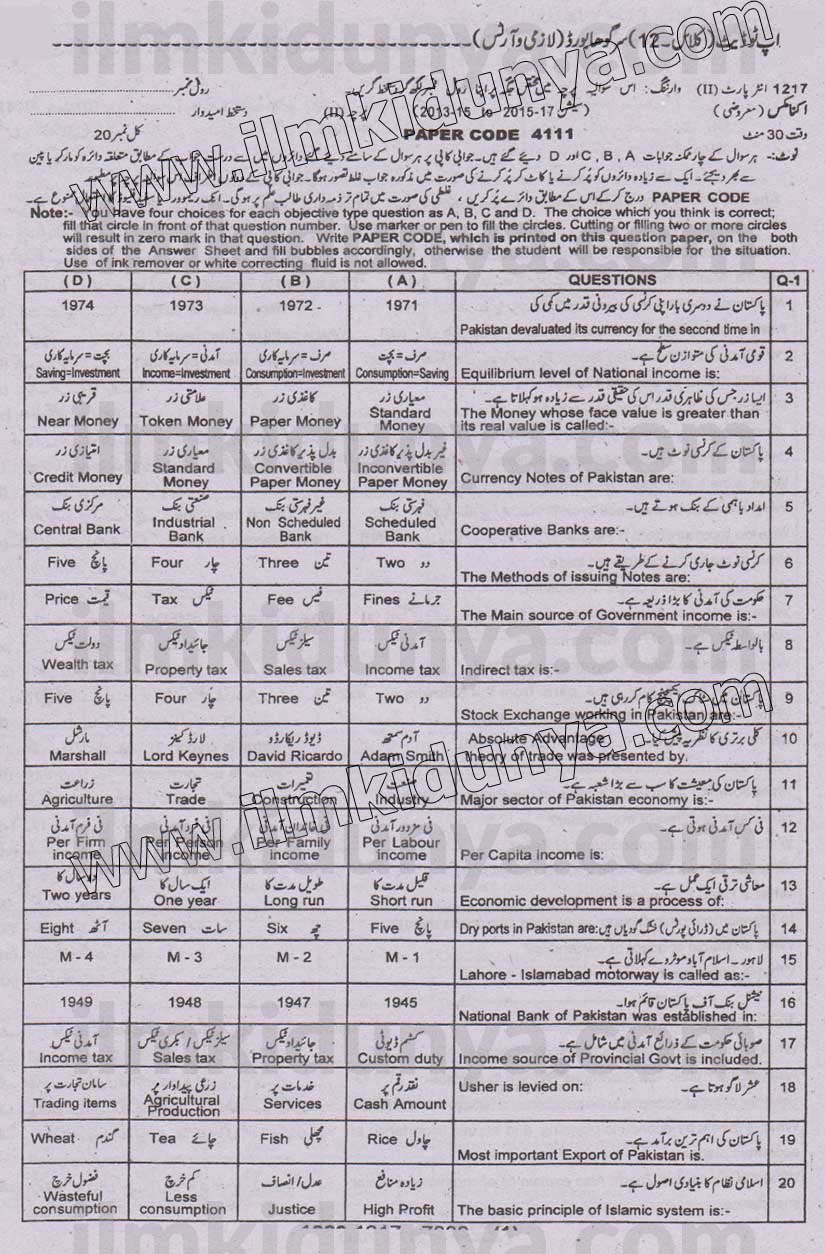 اپ ٹو ڈیٹ (کلاس ـ 12) سرگودھا بورڈ (لازمی و آرٹس)
1217 انٹر پارٹ (II) وارننگ: اس سوالیہ پرچہ میں مختص جگہ پر اپنا رول نمبر لکھ کر دستخط کریں۔ رول نمبر
اکنامکس (معروضی) (سیشن 2015-17 to 2013-15) پرچہ (II) دستخط امیدوار
وقت 30 منٹ PAPER CODE 4111 کل نمبر 20
نوٹ:- ہر سوال کے چار ممکنہ جوابات A ,B ,C اور D دیئے گئے ہیں۔ جوابی کاپی پر ہر سوال کے سامنے دیئے گئے دائروں میں سے درست جواب کے مطابق متعلقہ دائرہ کو مارکر یا پین
سے بھر دیجئے۔ ایک سے زیادہ دائروں کو پُر کرنے یا کاٹ کر پُر کرنے کی صورت میں مذکورہ جواب غلط تصور ہوگا۔
PAPER CODE درج کر کے اس کے مطابق دائرے پُر کریں، غلطی کی صورت میں تمام تر ذمہ داری طالب علم پر ہوگی۔ ممنوع ہے۔
Note:- You have four choices for each objective type question as A, B, C and D. The choice which you think is correct;
fill that circle in front of that question number. Use marker or pen to fill the circles. Cutting or filling two or more circles
will result in zero mark in that question. Write PAPER CODE, which is printed on this question paper, on the both
sides of the Answer Sheet and fill bubbles accordingly, otherwise the student will be responsible for the situation.
Use of ink remover or white correcting fluid is not allowed.
( D ) ( C ) ( B ) ( A ) QUESTIONS Q-1
1974 1973 1972 1971 پاکستان نے دوسری بار اپنی کرنسی کی بیرونی قدر میں کمی کی 1
Pakistan devaluated its currency for the second time in
بچت = سرمایہ کاری آمدنی = سرمایہ کاری صرف = سرمایہ کاری صرف = بچت قومی آمدنی کی متوازن سطح ہے۔ 2
Saving=Investment Income=Investment Consumption=Investment Consumption=Saving Equilibrium level of National income is:
قریبی زر علامتی زر کاغذی زر معیاری زر ایسا زر جس کی ظاہری قدر اس کی حقیقی قدر سے زیادہ ہو کہلاتا ہے۔ 3
Near Money Token Money Paper Money Standard Money The Money whose face value is greater than
its real value is called:-
اعتباری زر معیاری زر بدل پذیر کاغذی زر غیر بدل پذیر کاغذی زر پاکستان کے کرنسی نوٹ ہیں۔ 4
Credit Money Standard Money Convertible Paper Money Inconvertible Paper Money Currency Notes of Pakistan are:
مرکزی بنک صنعتی بنک غیر فہرستی بنک فہرستی بنک امداد باہمی کے بنک ہوتے ہیں۔ 5
Central Bank Industrial Bank Non Scheduled Bank Scheduled Bank Cooperative Banks are:-
Five پانچ Four چار Three تین Two دو کرنسی نوٹ جاری کرنے کے طریقے ہیں۔ 6
The Methods of issuing Notes are:
Price قیمت Tax ٹیکس Fee فیس Fines جرمانے حکومت کی آمدنی کا بڑا ذریعہ ہے۔ 7
The Main source of Government income is:-
دولت ٹیکس جائیداد ٹیکس سیلز ٹیکس آمدنی ٹیکس بالواسطہ ٹیکس ہے۔ 8
Wealth tax Property tax Sales tax Income tax Indirect tax is:-
Five پانچ Four چار Three تین Two دو پاکستان میں سٹاک ایکسچینج کام کر رہی ہیں۔ 9
Stock Exchange working in Pakistan are:-
مارشل لارڈ کینز ڈیوڈ ریکارڈو آدم سمتھ کلی برتری کا نظریہ پیش کیا۔ Absolute Advantage 10
Marshall Lord Keynes David Ricardo Adam Smith theory of trade was presented by.
زراعت تجارت تعمیرات صنعت پاکستان کی معیشت کا سب سے بڑا شعبہ ہے۔ 11
Agriculture Trade Construction Industry Major sector of Pakistan economy is:-
فی فرم آمدنی فی فرد آمدنی فی خاندان آمدنی فی مزدور آمدنی فی کس آمدنی ہوتی ہے۔ 12
Per Firm income Per Person income Per Family income Per Labour income Per Capita income is:
دو سال کا ایک سال کا طویل مدت کا قلیل مدت کا معاشی ترقی ایک عمل ہے۔ 13
Two years One year Long run Short run Economic development is a process of:
Eight آٹھ Seven سات Six چھ Five پانچ Dry ports in Pakistan are: پاکستان میں (ڈرائی پورٹس) خشک گودیاں ہیں 14
M - 4 M - 3 M - 2 M - 1 لاہور - اسلام آباد موٹروے کہلاتی ہے۔ 15
Lahore - Islamabad motorway is called as:-
1949 1948 1947 1945 نیشنل بنک آف پاکستان قائم ہوا۔ 16
National Bank of Pakistan was established in:
آمدنی ٹیکس سیلز ٹیکس / بکری ٹیکس جائیداد ٹیکس کسٹم ڈیوٹی صوبائی حکومت کے ذرائع آمدنی میں شامل ہے۔ 17
Income tax Sales tax Property tax Custom duty Income source of Provincial Govt is included.
سامان تجارت پر زرعی پیداوار پر خدمات پر نقد رقم پر Usher is levied on: عشر لاگو ہوتا ہے۔ 18
Trading items Agricultural Production Services Cash Amount
Wheat گندم Tea چائے Fish مچھلی Rice چاول پاکستان کی اہم ترین برآمد ہے۔ 19
Most important Export of Pakistan is.
فضول خرچ کم خرچ عدل / انصاف زیادہ منافع اسلامی نظام کا بنیادی اصول ہے۔ 20
Wasteful consumption Less consumption Justice High Profit The basic principle of Islamic system is:-
www.ilmkidunya.com
www.ilmkidunya.com
ilmkidunya.com
ilmkidunya.com